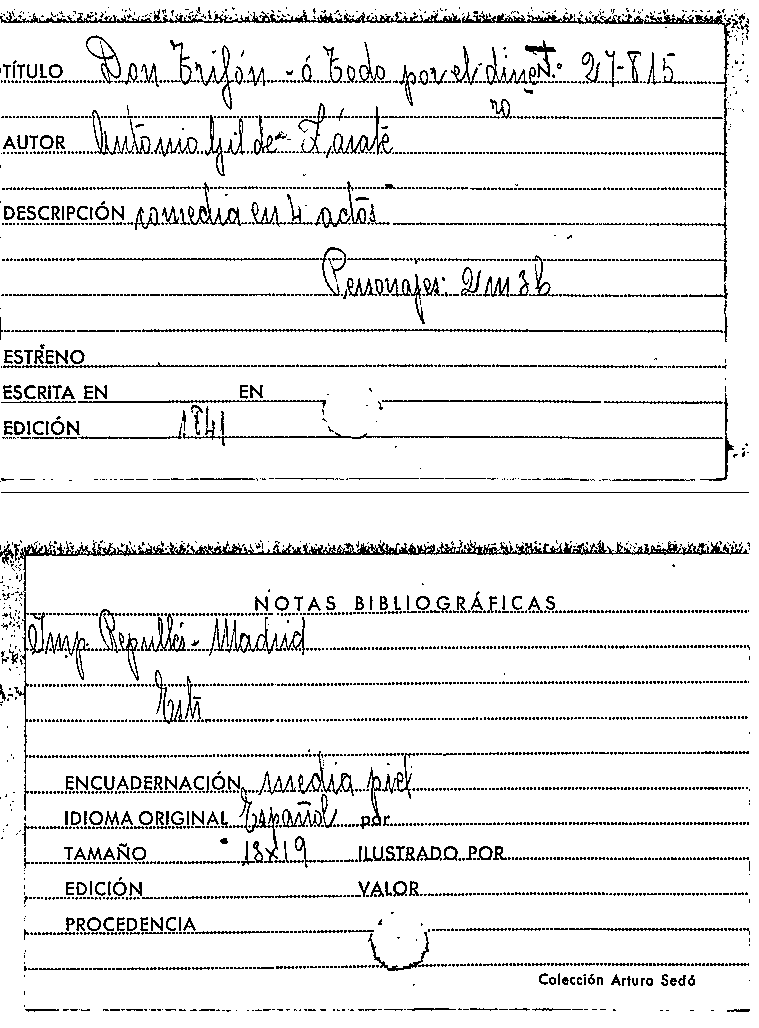 TÍTULO Don Trifón - ó Todo por el dine N.º 27-815
ro -
AUTOR Antonio Gil de Zárate
DESCRIPCIÓN comedia en 4 actos
Personajes: 2 m 3 h
ESTRENO
ESCRITA EN EN
EDICIÓN 1841
NOTAS BIBLIOGRÁFICAS
Imp Repullés - Madrid
ENCUADERNACIÓN media piel
IDIOMA ORIGINAL Español por
TAMAÑO 13x19 ILUSTRADO POR
EDICIÓN VALOR
PROCEDENCIA
Colección Arturo Sedó